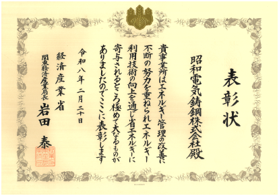 表彰状
昭和電気鋳鋼株式会社殿
貴事業所はエネルギー管理の改善に
不断の努力を重ねられエネルギー
利用技術の向上を通じ省エネルギーに
寄与されるところ極めて大であるものが
ありましたのでここに表彰します
令和八年二月二十日
経済産業省
関東経済産業局長
岩田泰